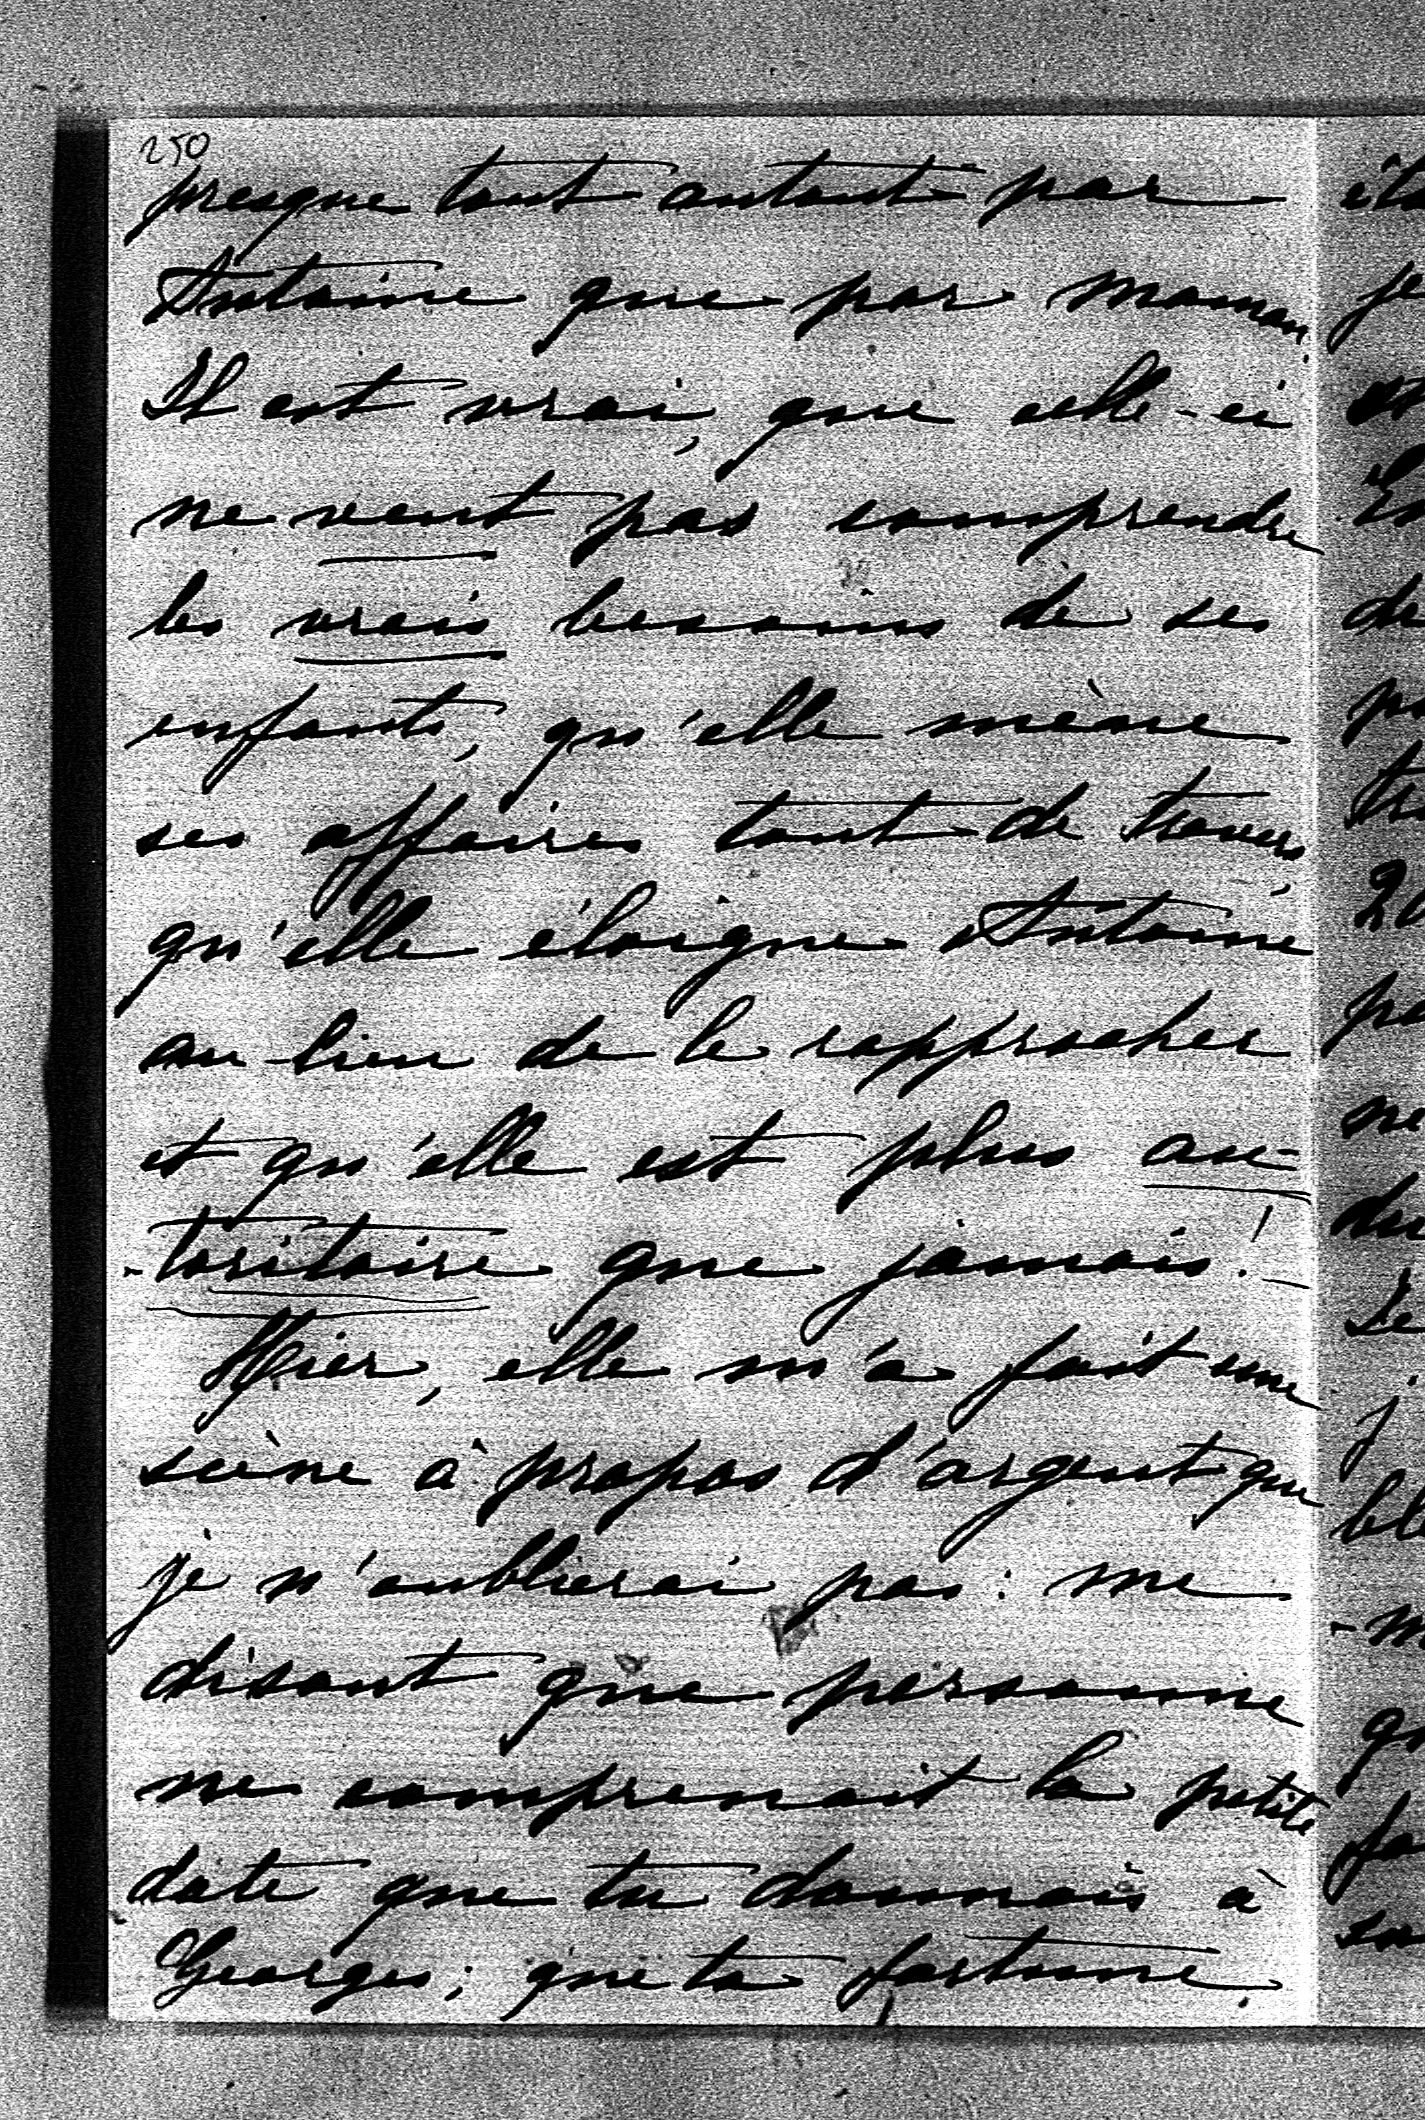 250
presque tout autant par
Antoine que par maman.
Il est vrai, que celle-ci
ne veut pas comprendre
les vrais besoins de ses
enfants, qu'elle mène
ses affaires tout de travers,
qu'elle éloigne Antoine
au lieu de le rapprocher
et qu'elle est plus au-
-toritaire que jamais! _
Hier, elle m'a fait une
scène à propos d'argent que
je n'oublierai pas: me
disant que personne
ne comprenait la petite
date que tu donnais à
Georges; que ta fortune,